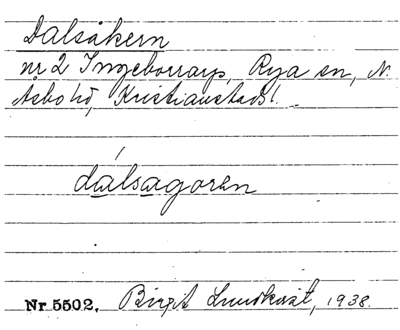 Dalsåkern
nr 2 Ingeborrarp, Rya sn, N.
Åsbo hd, Kristianstads l.
dálsagorεn
Nr 5502. Birgit Lundkvist, 1938.